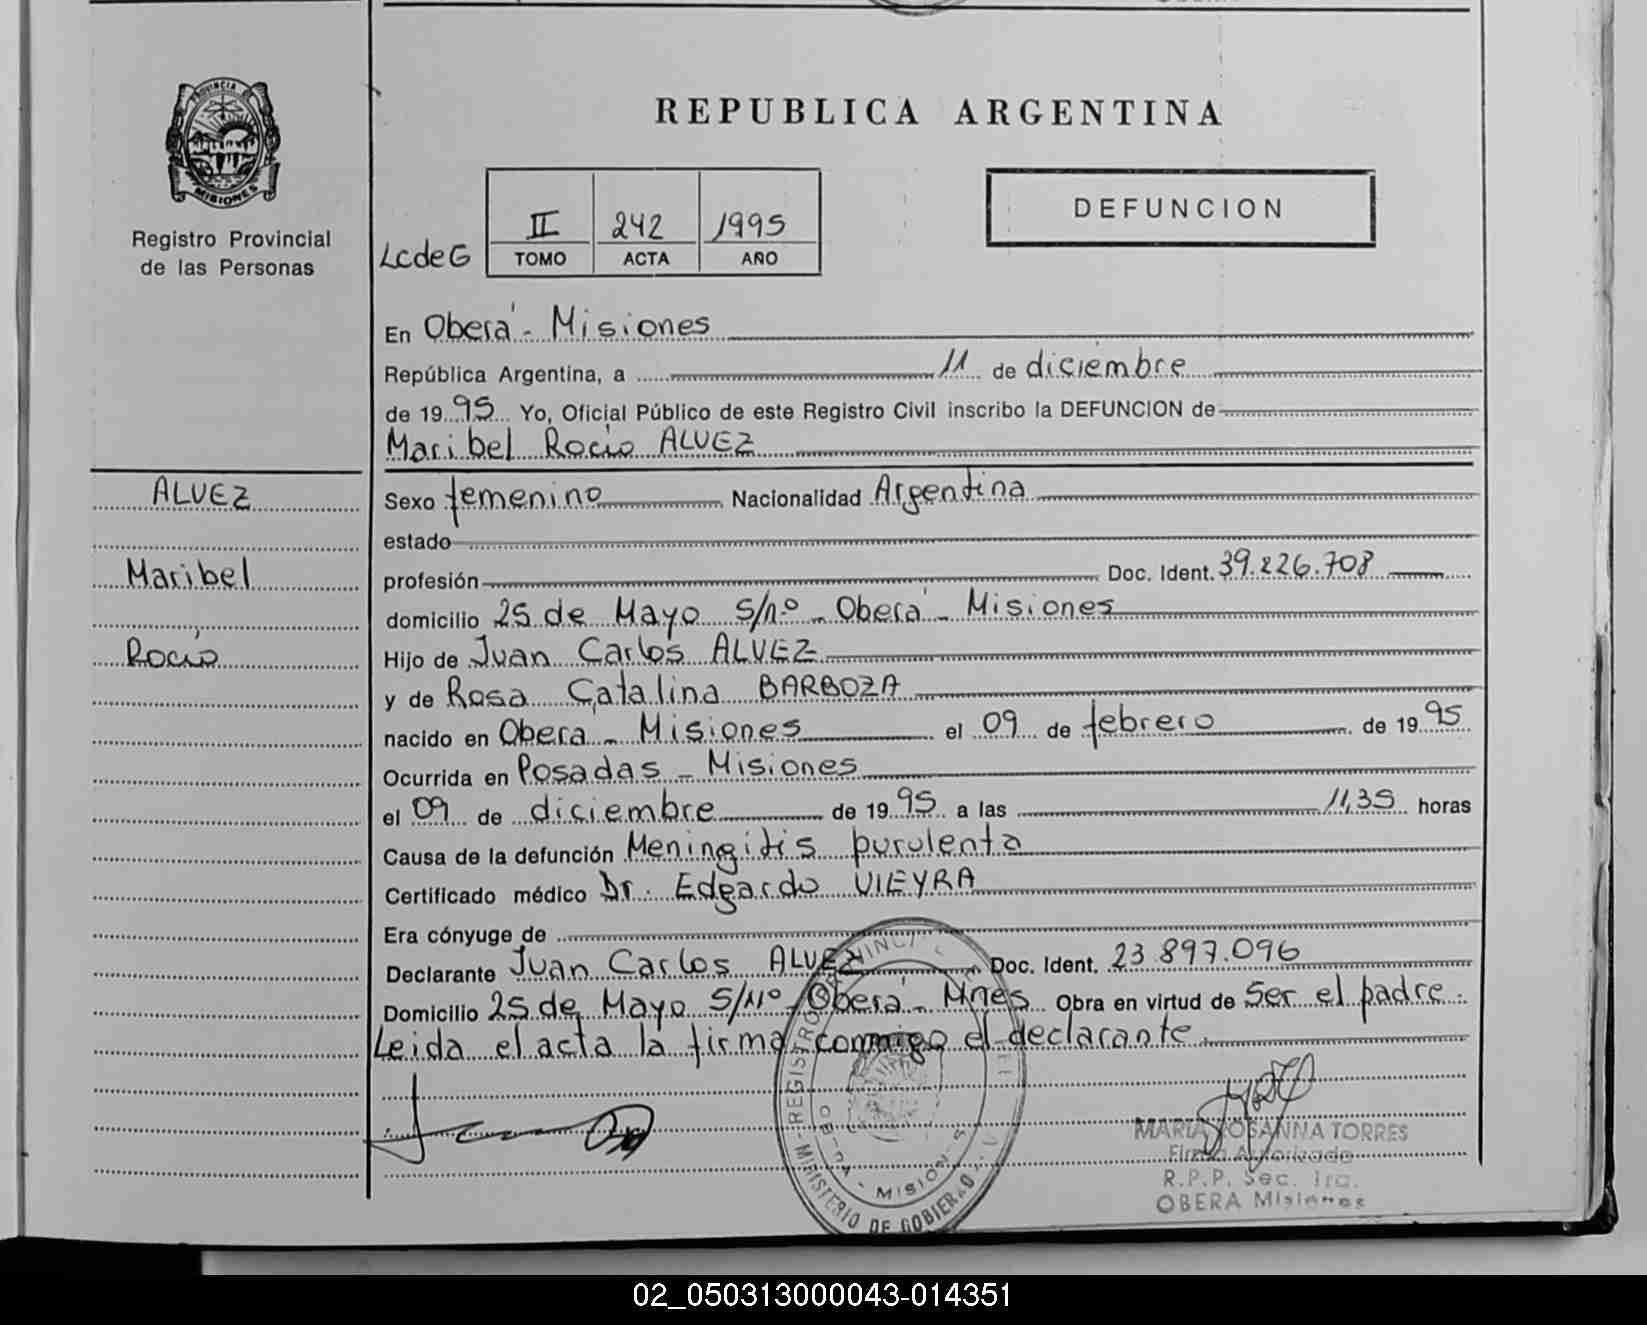 PROVINCIA DE
MISIONES
Registro Provincial
de las Personas
REPUBLICA ARGENTINA
DEFUNCION
LcdeG
II 242 1995
TOMO ACTA AÑO
En Oberá - Misiones
República Argentina, a 11 de diciembre
de 19 95 Yo, Oficial Público de este Registro Civil inscribo la DEFUNCION de
Maribel Rocío ALVEZ
ALVEZ
Maribel
Rocío
Sexo femenino Nacionalidad Argentina
estado
profesión Doc. Ident. 39.226.708
domicilio 25 de Mayo S/nº - Oberá - Misiones
Hijo de Juan Carlos ALVEZ
y de Rosa Catalina BARBOZA
nacido en Oberá - Misiones el 09 de febrero de 19 95
Ocurrida en Posadas - Misiones
el 09 de diciembre de 19 95 a las 11,35 horas
Causa de la defunción Meningitis purulenta
Certificado médico Dr. Edgardo VIEYRA
Era cónyuge de
Declarante Juan Carlos ALVEZ Doc. Ident. 23 897.096
Domicilio 25 de Mayo S/Nº - Oberá - Mnes Obra en virtud de Ser el padre.
Leida el acta la firma conmigo el declarante.
MINISTERIO DE GOBIERNO
REGISTRO
MISION
MARIA ROSANNA TORRES
Firma Autorizada
R.P.P. Sec. 1ra.
OBERA Misiones
02_050313000043-014351